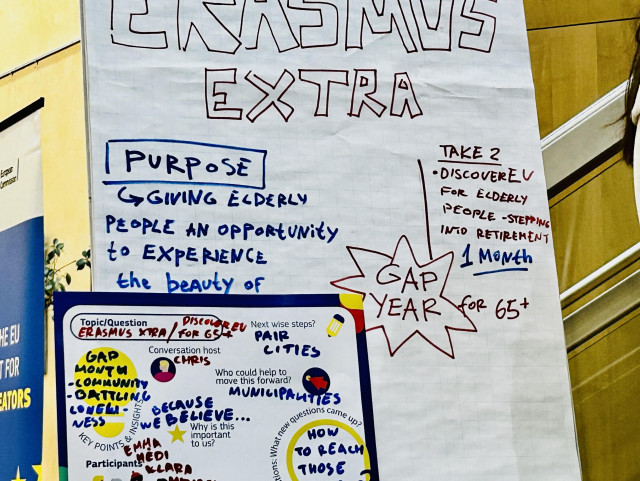 ERASMUS
EXTRA
PURPOSE
GIVING ELDERLY
PEOPLE AN OPPORTUNITY
to EXPERIENCE
the beauty of
TAKE 2
• DISCOVEREU
FOR ELDERLY
PEOPLE - STEPPING
INTO RETIREMENT
1 MONTH
GAP
YEAR
for 65+
European
Commission
HE EU
T FOR
EATORS
Topic/Question
ERASMUS XTRA / DISCOVER EU
FOR 65+
Next wise steps?
PAIR
CITIES
Conversation host
CHRIS
GAP
MONTH
- COMMUNITY
- BATTLING
LONELI-
NESS
KEY POINTS & INSIGHTS
Who could help to
move this forward?
MUNICIPALITIES
BECAUSE
WE BELIEVE...
Why is this
important
to us?
What new questions came up?
HOW
TO REACH
THOSE
Participants
EMMA
HEDI
KLARA